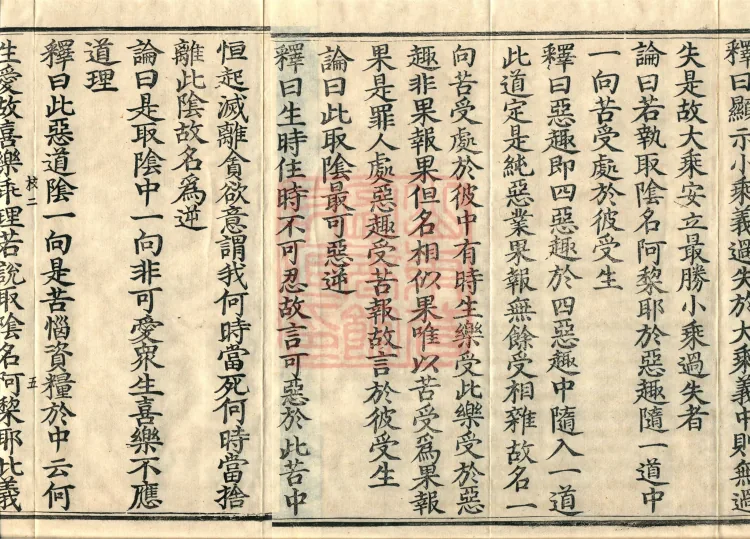 釋曰顯示小乘義過失於大乘義中則無過
失是故大乘安立最勝小乘過失者
論曰若執取陰名阿黎耶於惡趣隨一道中
一向苦受處於彼受生
釋曰惡趣即四惡趣於四惡趣中隨入一道
此道定是純惡業果報無餘受相雜故名一
向苦受處於彼中有時生樂受此樂受於惡
趣非果報果但名相似果唯以苦受爲果報
果是罪人處惡趣受苦報故言於彼受生
論曰此取陰最可惡逆
釋曰生時住時不可忍故言可惡於此苦中
恒起滅離貪欲意謂我何時當死何時當捨
離此陰故名爲逆
論曰是取陰中一向非可愛衆生喜樂不應
道理
釋曰此惡道陰一向是苦惱資糧於中云何
生愛故喜樂乖理若說取陰名阿黎耶此義
校二
五